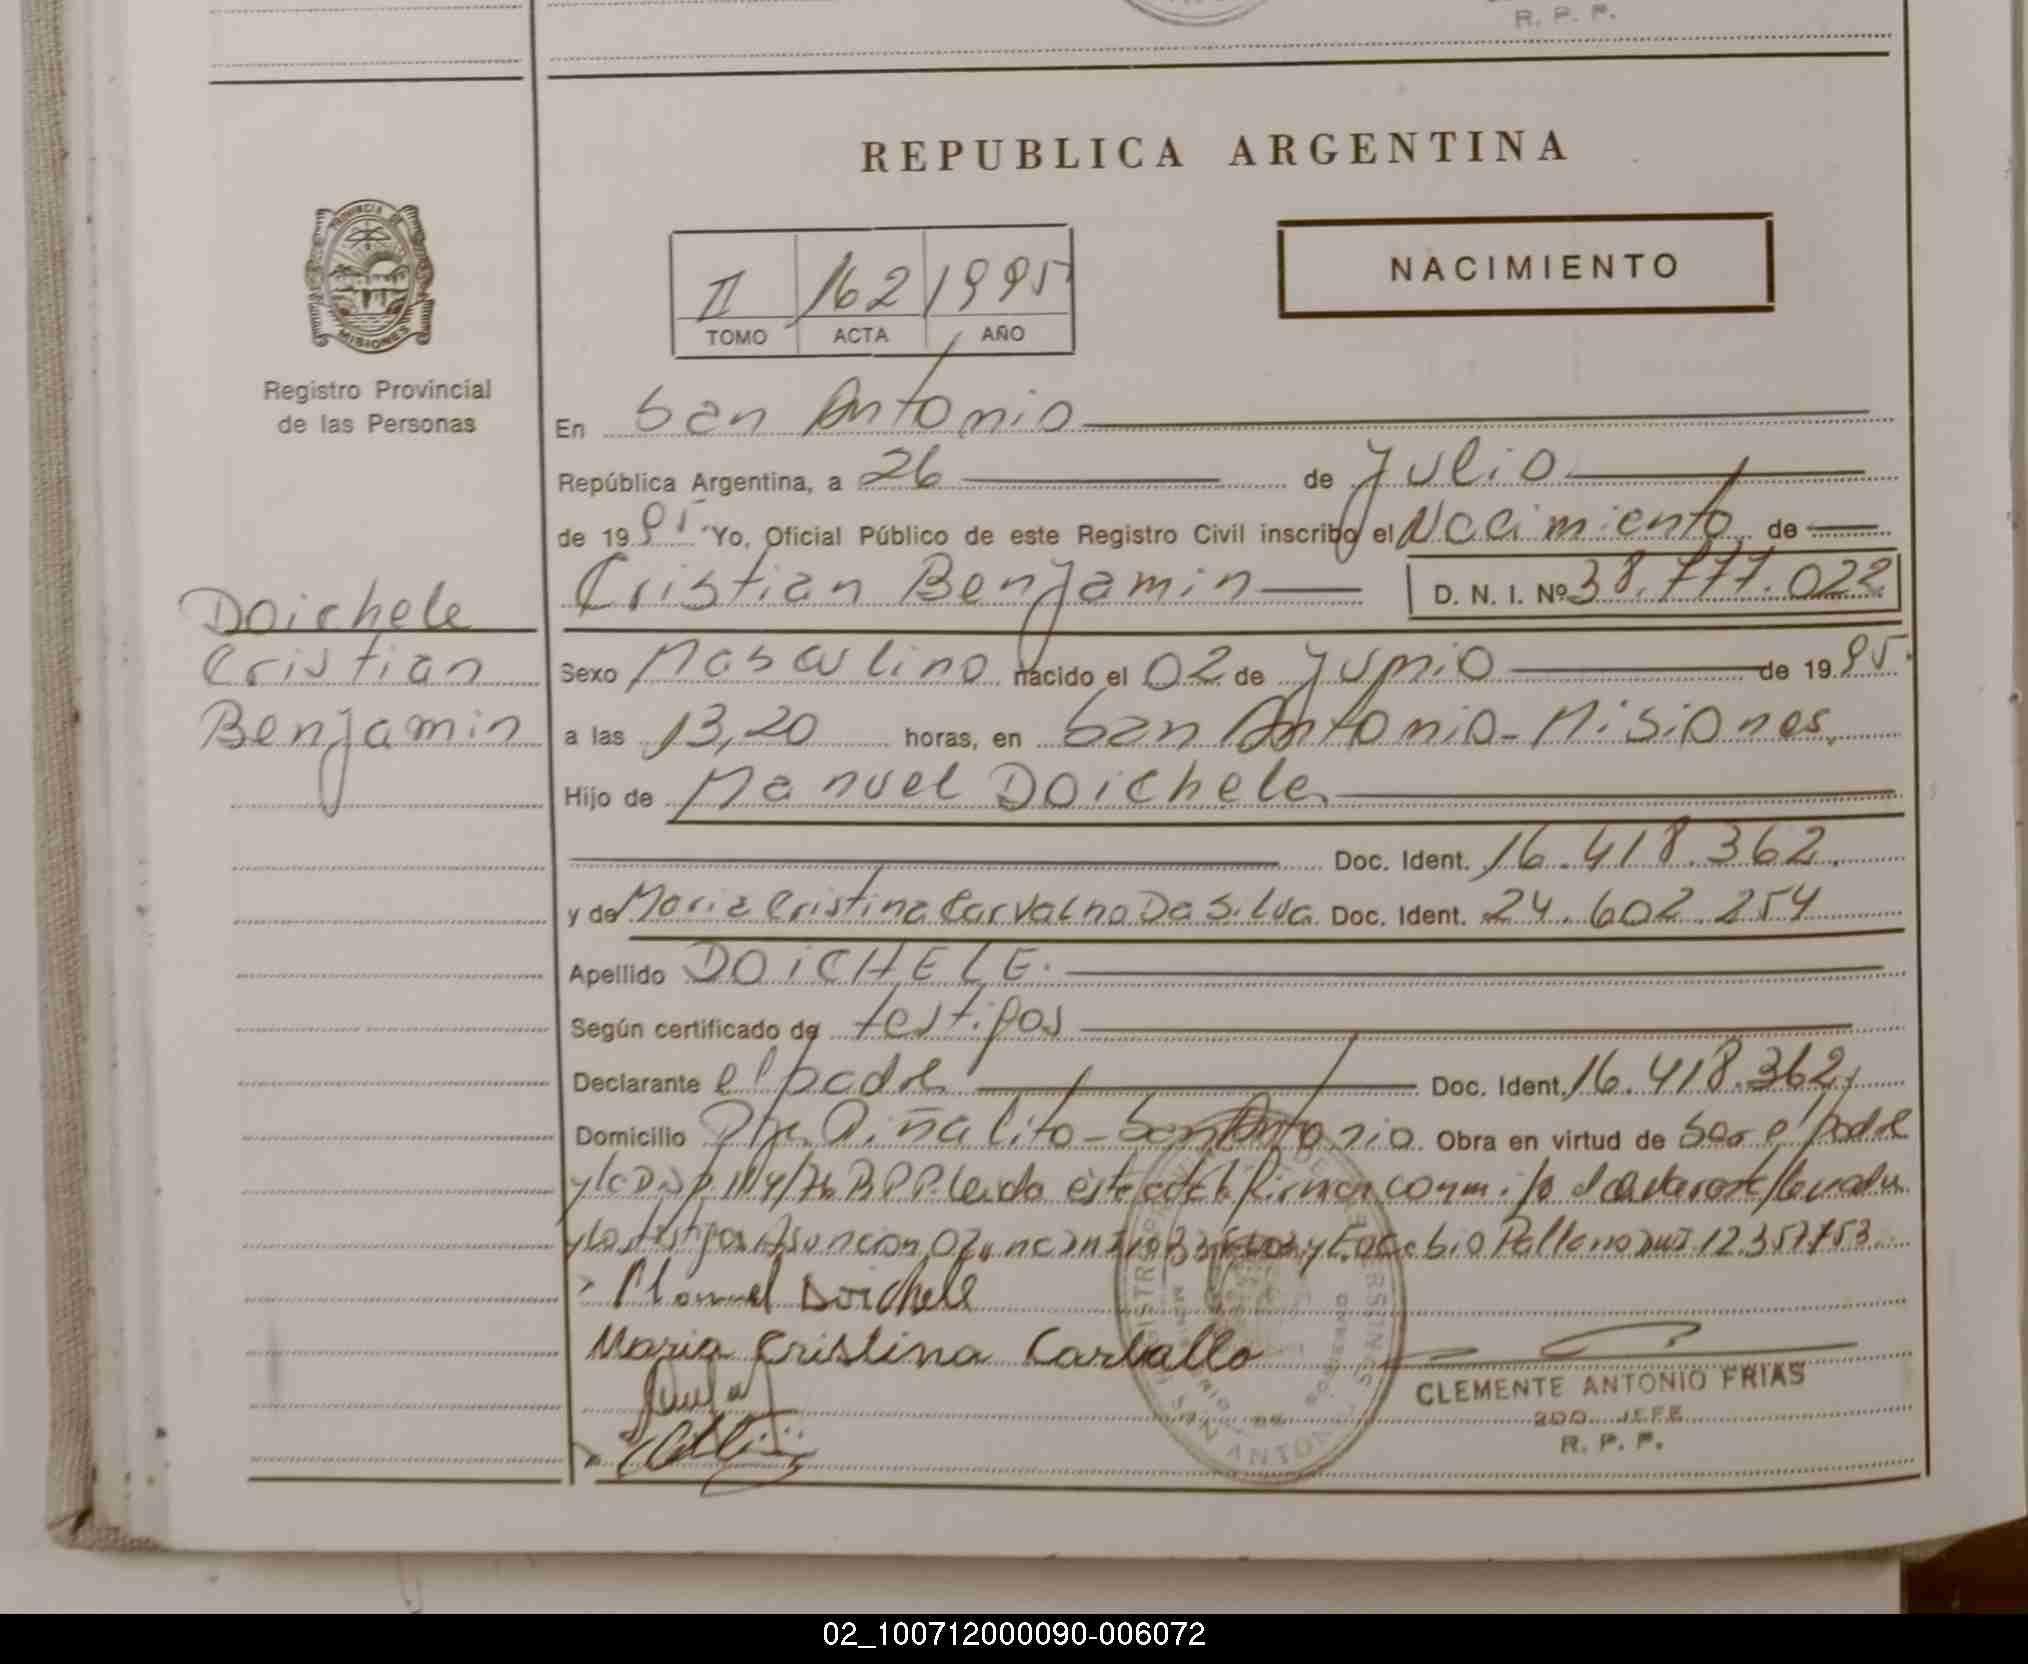 R. P. P.
REPUBLICA ARGENTINA
PROVINCIA DE
MISIONES
Registro Provincial
de las Personas
II 162 1995
TOMO ACTA AÑO
NACIMIENTO
En San Antonio
República Argentina, a 26 de Julio
de 1995. Yo, Oficial Público de este Registro Civil inscribo el Nacimiento de
Cristian Benjamin D. N. I. Nº 38.777.022
Doichele
Cristian
Benjamin
Sexo Masculino nacido el 02 de Junio de 1995.
a las 13,20 horas, en San Antonio - Misiones.
Hijo de Manuel Doichele
Doc. Ident. 16.418.362.
y de Maria Cristina Carvalho Da Silva Doc. Ident. 24.602.254
Apellido DOiCHELE.
Según certificado de testigos
Declarante el padre Doc. Ident. 16.418.362
Domicilio Piñalito - San Antonio Obra en virtud de Ser el padre
Leida este acta firman conmigo el declarante
y los testigos Asuncion y 12.357.153
Manuel Doichele
Maria Cristina Carballo
CLEMENTE ANTONIO FRIAS
2DO. JEFE
R. P. P.
SAN ANTONIO
02_100712000090-006072